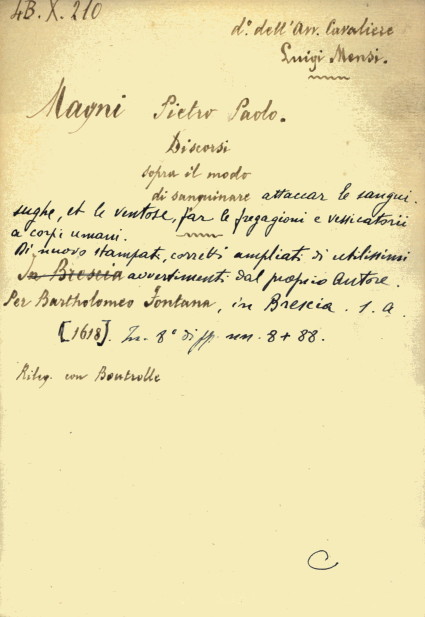 4B.X.210
dº. dell'Avv. Cavaliere
Luigi Mensi.
Magni Pietro Paolo.
Discorsi
sopra il modo
di sanguinare attaccar le sangui.
sughe, et le ventose, far le fregagioni e vessicatorii
a corpi umani.
Di nuovo stampati, corretti ampliati di utilissimi
In Brescia avvertimenti dal proprio Autore.
Per Bartholomeo Fontana, in Brescia. s. a.
[1618]. In 8º di pp. nn. 8 + 88.
Rileg. con Bontrolle
C